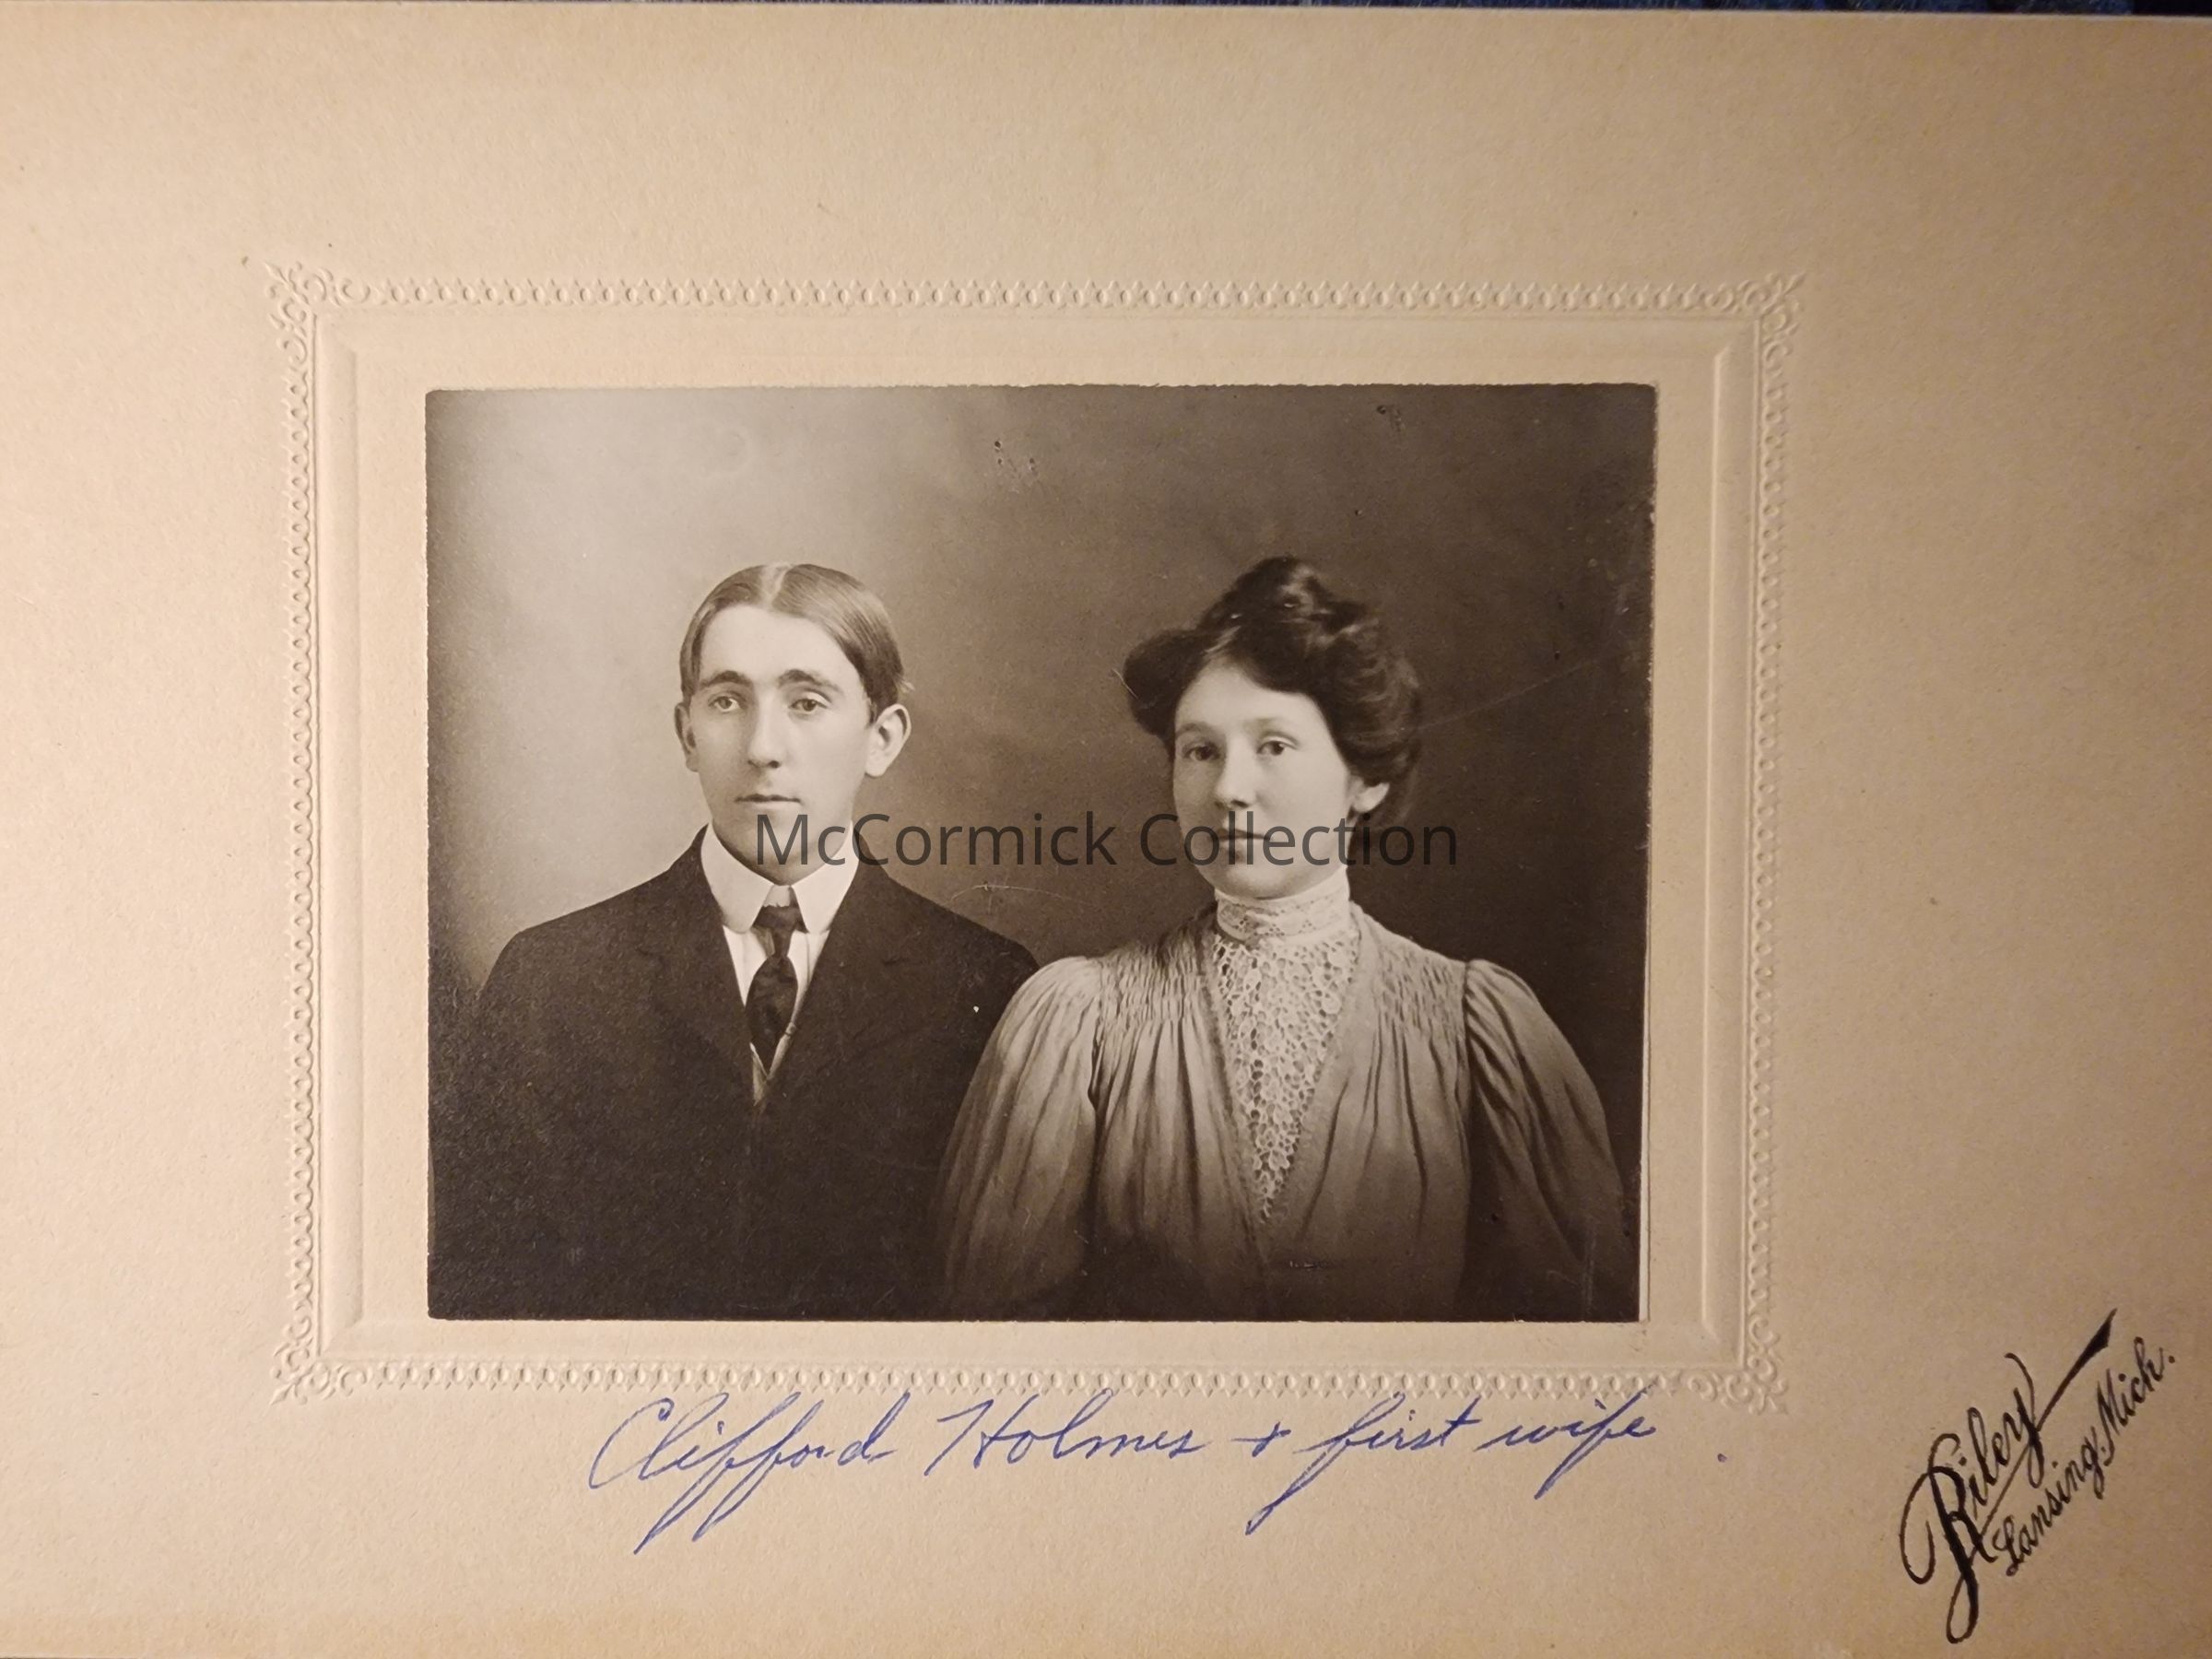 McCormick Collection
Clifford Holmes + first wife
Riley
Lansing, Mich.